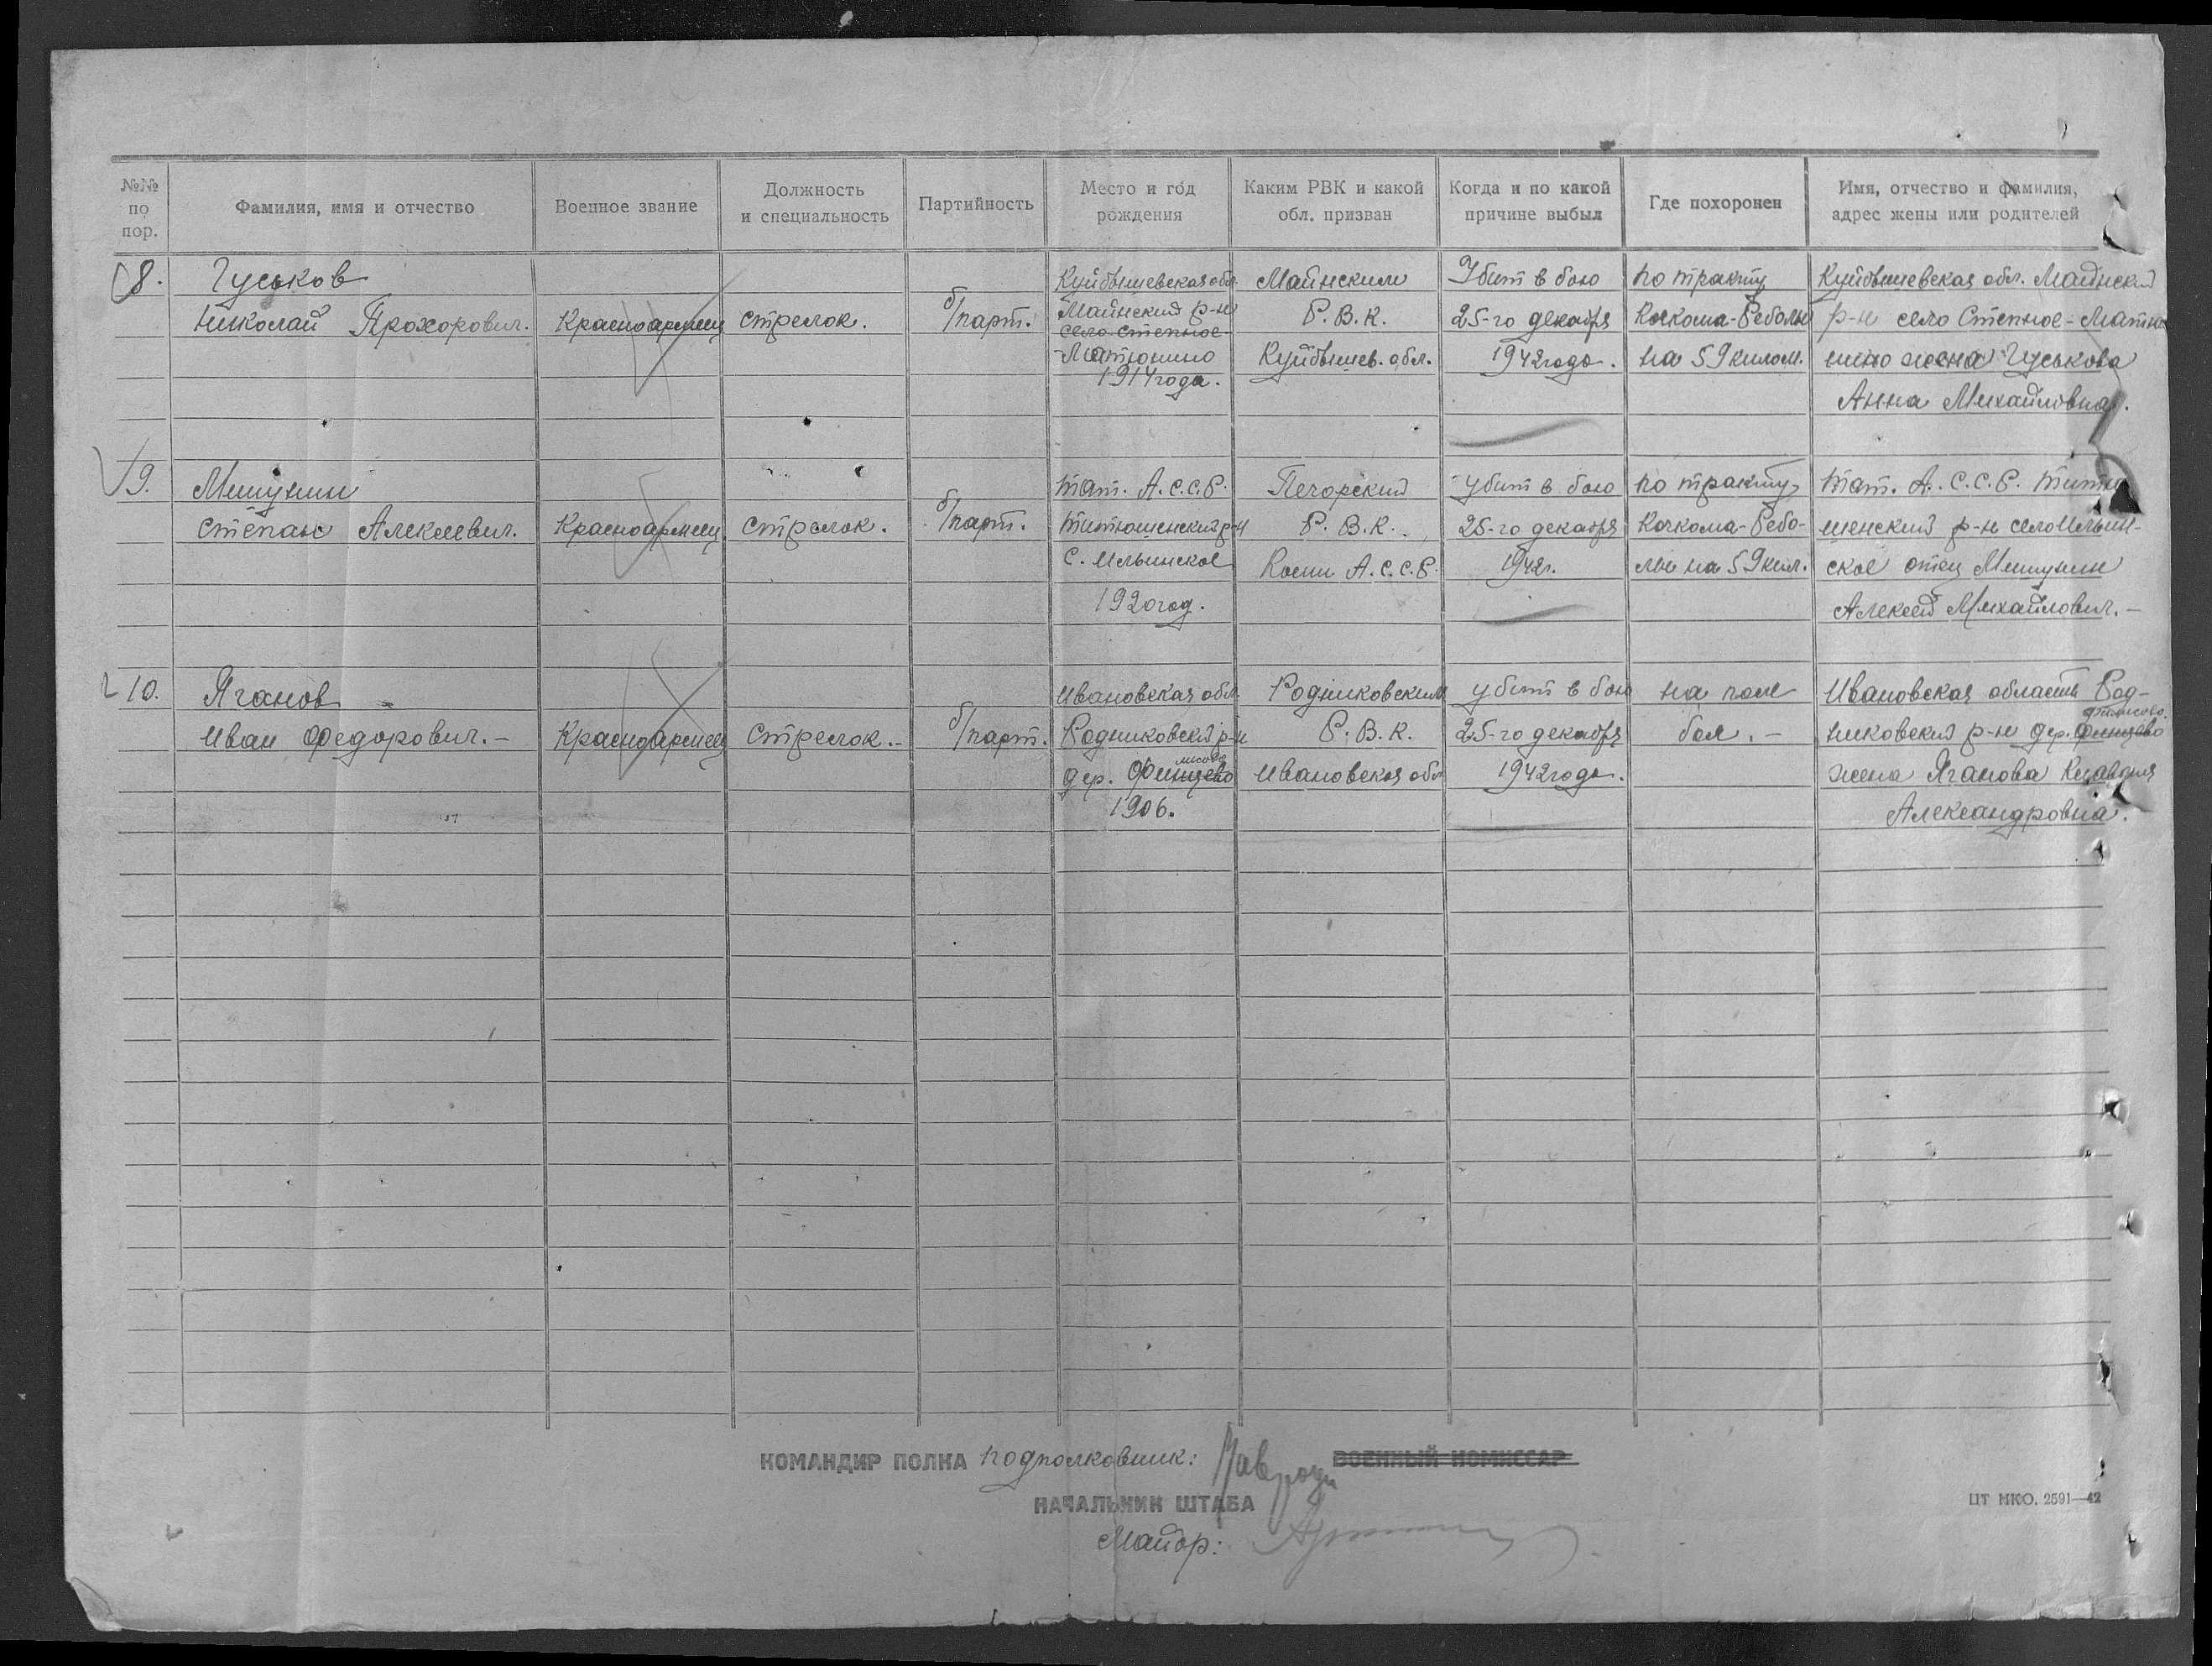 №№ по пор.
Фамилия, имя и отчество
Военное звание
Должность и специальность
Партийность
Место и год рождения
Каким РВК и какой обл. призван
Когда и по какой причине выбыл
Где похоронен
Имя, отчество и фамилия, адрес жены или родителей
8. Гуськов Куйбышевская обл. Майнским Убит в бою по тракту Куйбышевская обл. Майнский
Николай Прохорович. Красноармеец стрелок. б/парт. Майнский р-н Р.В.К. 25-го декабря Кочкома-Реболы р-н село Степное-Матю
село Степное
-Матюнино Куйбышев. обл. 1942года. на 59 килом. нино жена Гуськова
1914года. Анна Михайловна.
9. Мишунин тат. А.С.С.Р. Печорский убит в бою по тракту тат. А.С.С.Р. тетю
степан Алексеевич. Красноармеец стрелок. б/парт. тетюшенский р-н Р.В.К. 25-го декабря Кочкома-Ребо- шенский р-н село Ильин-
с. Ильинское Коми А.С.С.Р. 1942г. лы на 59 кил. ское отец Мишунин
1920год. Алексей Михайлович.-
10. Яганов Ивановская обл. Родниковским убит в бою на поле Ивановская область Род-
Иван Федорович.- Красноармеец Стрелок.- б/парт. Родниковский р-н Р.В.К. 25-го декабря боя.- никовский р-н дер.
дер. Ивановская обл 1942года. жена Яганова Клавдия
1906. Александровна.
КОМАНДИР ПОЛКА подполковник: ВОЕННЫЙ КОМИССАР
НАЧАЛЬНИК ШТАБА
Майор:
ЦТ НКО. 2591—42